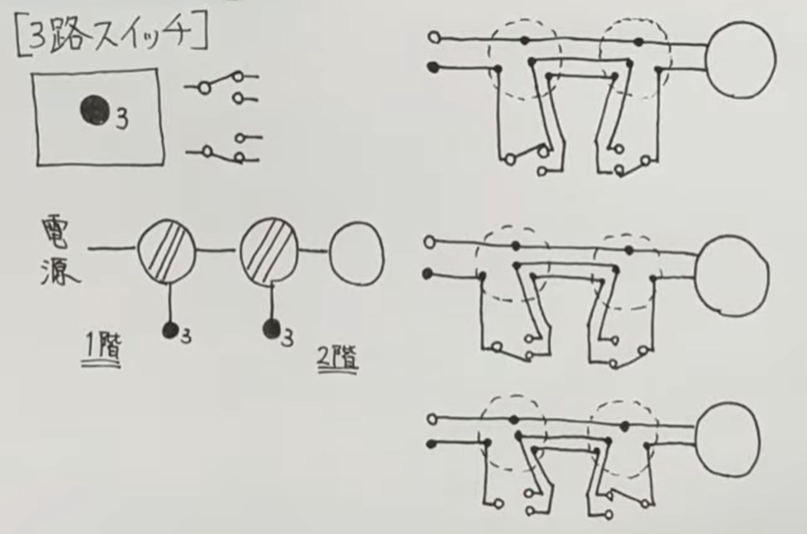 [3路スイッチ]
3
電源
3
3
1階
2階